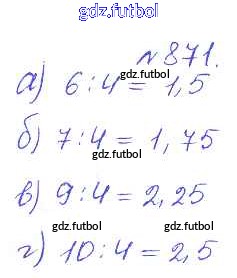 gdz.futbol
№871.
а) 6 : 4 = 1,5
gdz.futbol
б) 7 : 4 = 1,75
gdz.futbol
в) 9 : 4 = 2,25
gdz.futbol gdz.futbol
г) 10 : 4 = 2,5